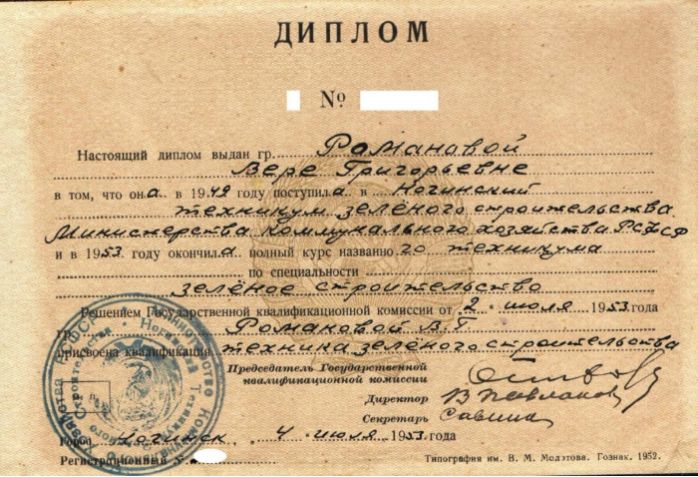 ДИПЛОМ
№
Настоящий диплом выдан гр. Романовой
Вере Григорьевне
в том, что она в 1949 году поступила в Ногинский
техникум зелёного строительства
Министерства Коммунального хозяйства РСФСР
и в 1953 году окончила полный курс названного техникума
по специальности
зелёное строительство
Решением Государственной квалификационной комиссии от 2 июля 1953 года
гр. Романовой В. Г.
присвоена квалификация техника зелёного строительства
Председатель Государственной
квалификационной комиссии
Директор
Секретарь
Город Ногинск. 4 июля 1953 года
Регистрационный №
Типография им. В. М. Молотова. Гознак. 1952.